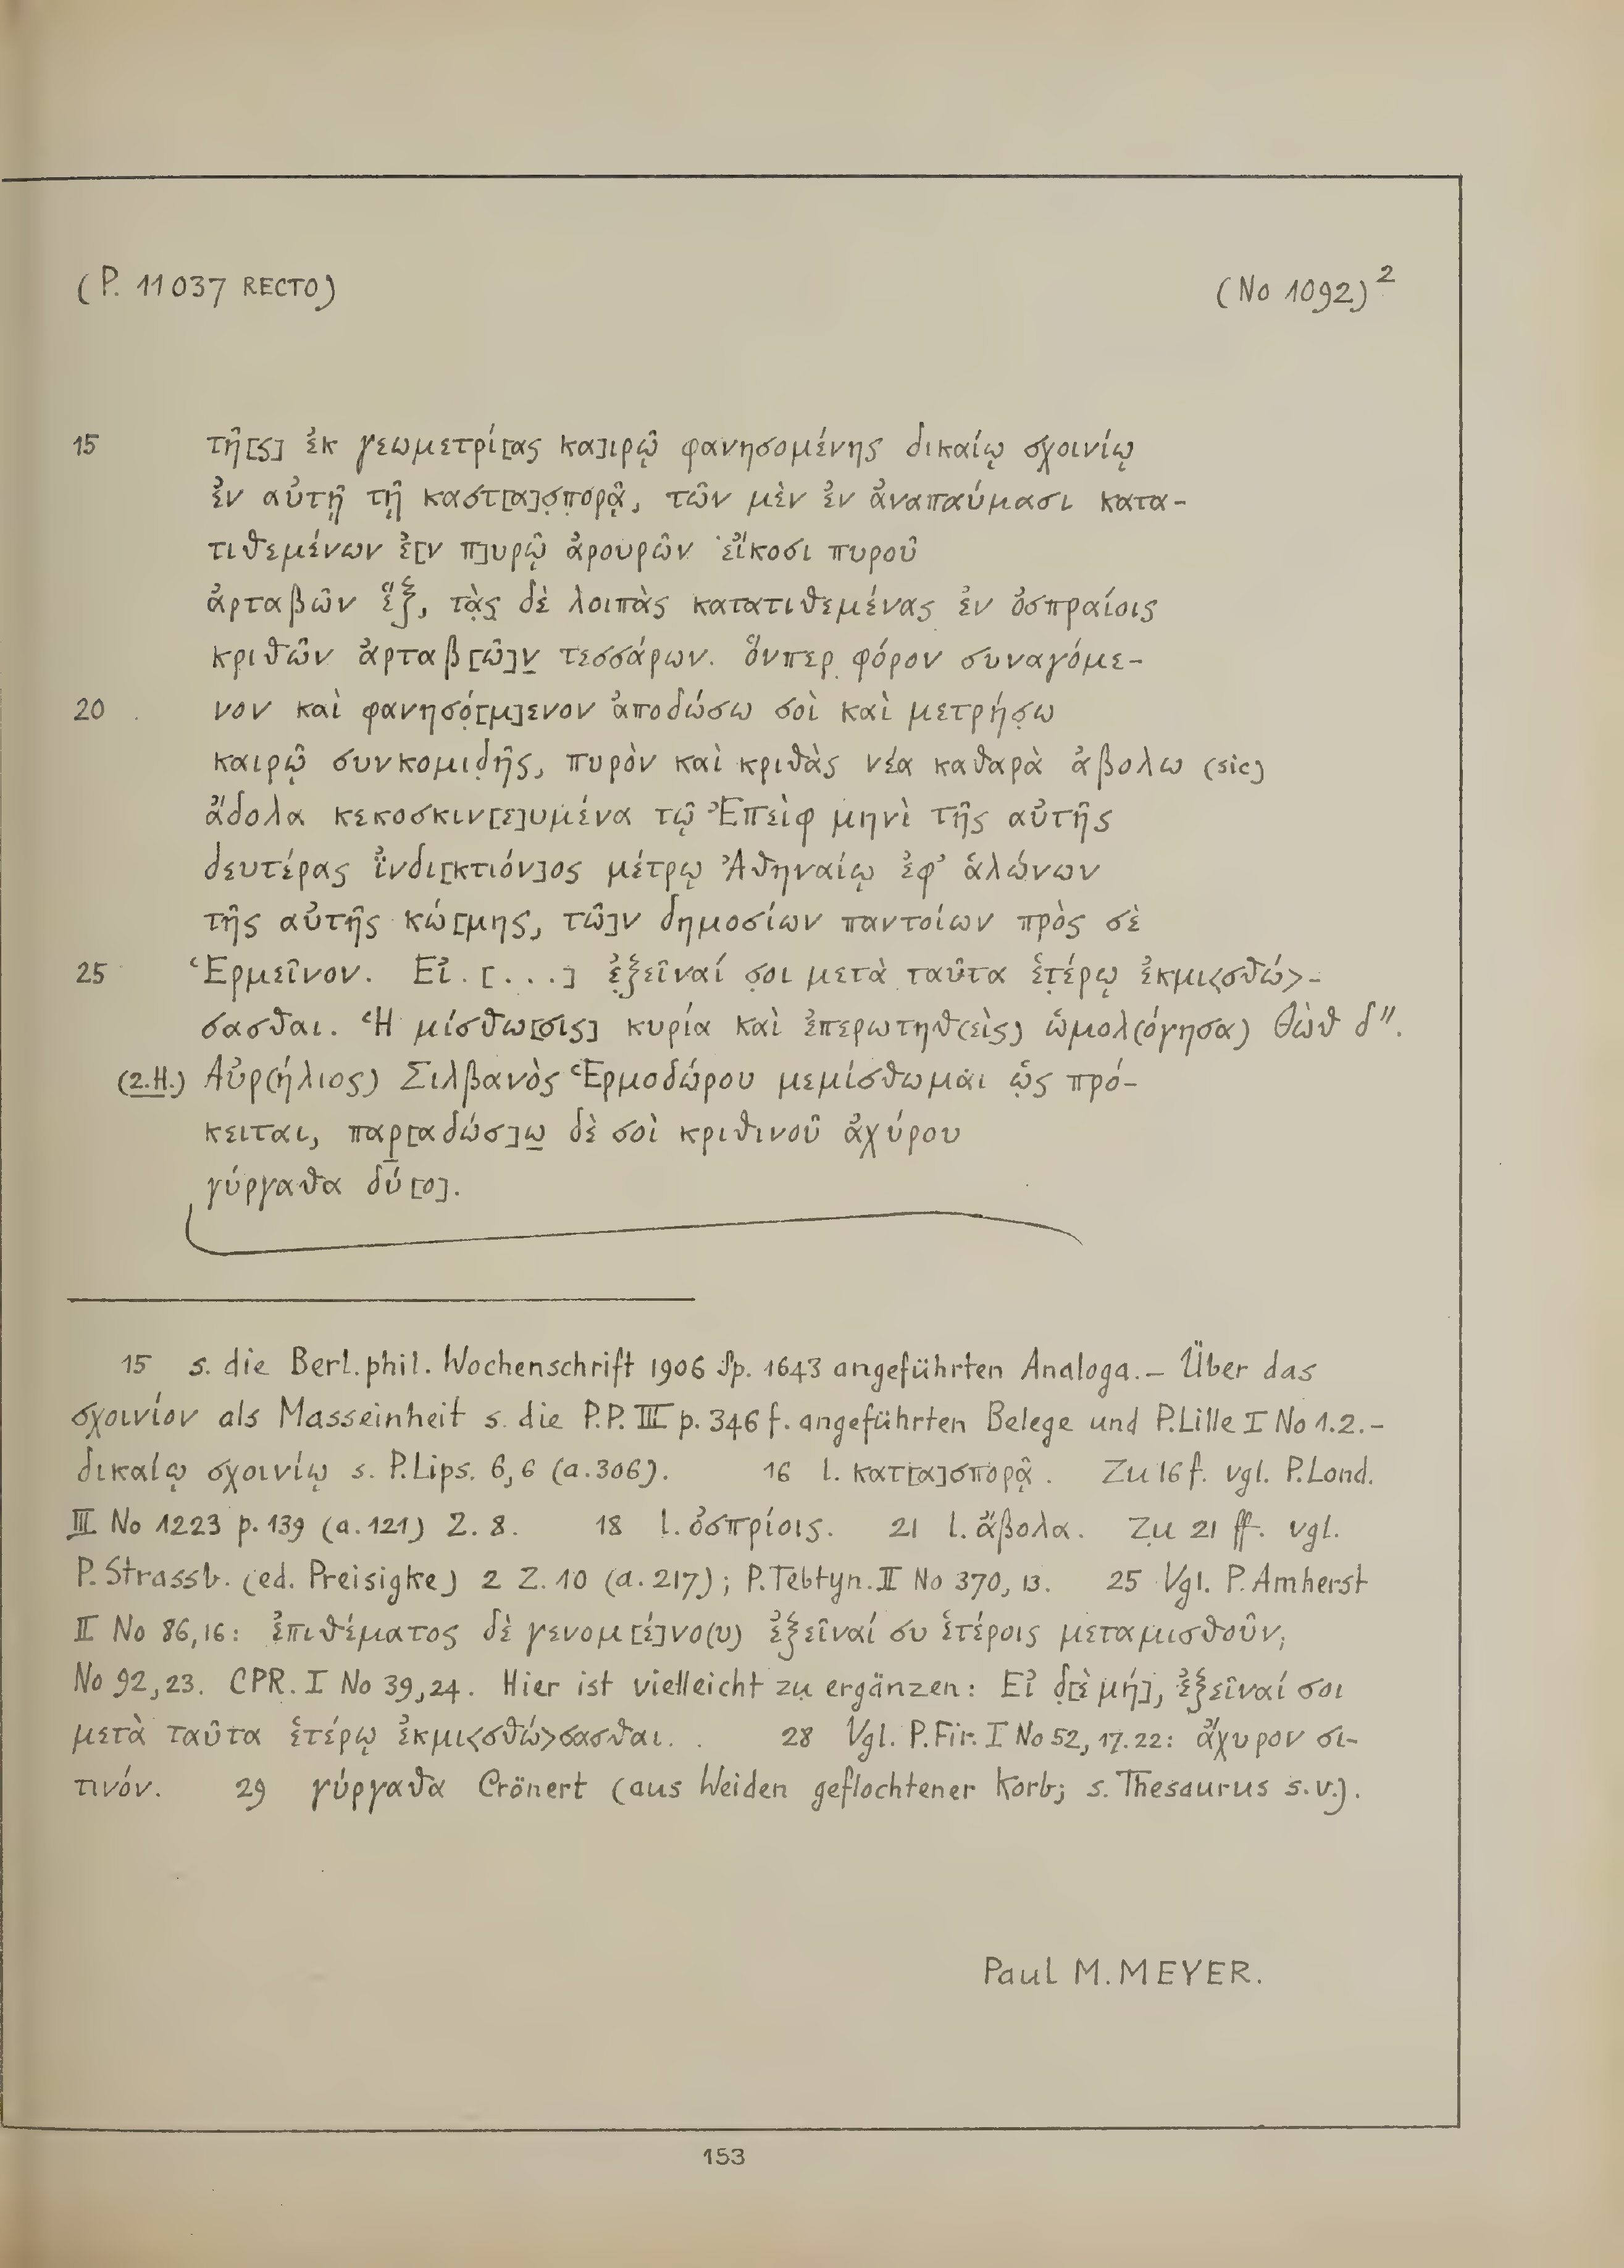 (P. 11037 RECTO) (No 1092)²
15 τῆ[ς] ἐκ γεωμετρί[ας κα]ιρῷ φανησομένης δικαίῳ σχοινίῳ
ἐν αὐτῇ τῇ καστ[α]σ̣π̣ορᾷ, τῶν μὲν ἐν ἀναπαύμασι κατα-
τιθεμένων ἐ[ν π]υρῷ ἀρουρῶν εἴκοσι πυροῦ
ἀρταβῶν ἕξ, τὰ̣ς̣ δὲ λοιπὰς κατατιθεμένας ἐν ὀσπραίοις
κριθῶν ἀρταβ[ῶ]ν̲ τεσσάρων. ὅνπερ φόρον συναγόμε-
20 νον καὶ φανησό̣[μ]ενον ἀποδώσω σοὶ καὶ μετρήσ̣ω
καιρῷ συνκομιδ̣ῆς, πυρὸν καὶ κριθὰς νέα καθαρὰ ἀβολω (sic)
ἄδολα κεκοσκιν[ε]υμένα τῷ Ἐπεὶφ μηνὶ τῆς αὐτῆς
δευτέρας ἰ̈νδι[κτιόν]ος μέτρῳ Ἀθηναίῳ ἐφ’ ἁλώνων
τῆς αὐτῆς κώ[μης, τῶ]ν δημοσίων παντοίων πρὸς σὲ
25 Ἑρμεῖνον. Εἰ . [...] ἐ̣ξ̣εῖναί σ̣οι μετὰ ταῦτα ἑτ̣έρῳ ἐκμι<σθώ>-
σασθαι. Ἡ μίσθω[σις] κυρία καὶ ἐπερωτηθ(εὶς) ὡμολ(όγησα) Θὼθ δ″.
(2.H.) Αὐρ(ήλιος) Σιλβανὸς Ἑρμοδώρου μεμίσθωμαι ὡ̣ς πρό-
κειται, παρ̲[αδώσ]ω̲ δὲ σοὶ κριθινοῦ ἀχύρου
γύργαθα δύ[ο].
15 s. die Berl. phil. Wochenschrift 1906 Sp. 1643 angeführten Analoga. – Über das
σχοινίον als Masseinheit s. die P.P. III p. 346 f. angeführten Belege und P. Lille I No 1.2. –
δικαίῳ σχοινίῳ s. P. Lips. 6,6 (a. 306). 16 l. κατ[α]σπορᾷ. Zu 16 f. vgl. P. Lond.
III No 1223 p. 139 (a. 121) Z. 8. 18 l. ὀσπρίοις. 21 l. ἄβολα. Zu 21 ff. vgl.
P. Strassb. (ed. Preisigke) 2 Z. 10 (a. 217); P. Tebtyn. II No 370, 13. 25 Vgl. P. Amherst
II No 86,16: ἐπιθέματος δὲ γενομ[έ]νο(υ) ἐξεῖναί συ ἑτέροις μεταμισθοῦν;
No 92,23. CPR. I No 39,24. Hier ist vielleicht zu ergänzen: Εἰ δ̣[ὲ μή], ἐξεῖναί σοι
μετὰ ταῦτα ἑτέρῳ ἐκμι<σθώ>σασθαι. 28 Vgl. P. Fir. I No 52, 17.22: ἄχυρον σι-
τινόν. 29 γύργαθα Crönert (aus Weiden geflochtener Korb; s. Thesaurus s.v.).
Paul M. MEYER.
153